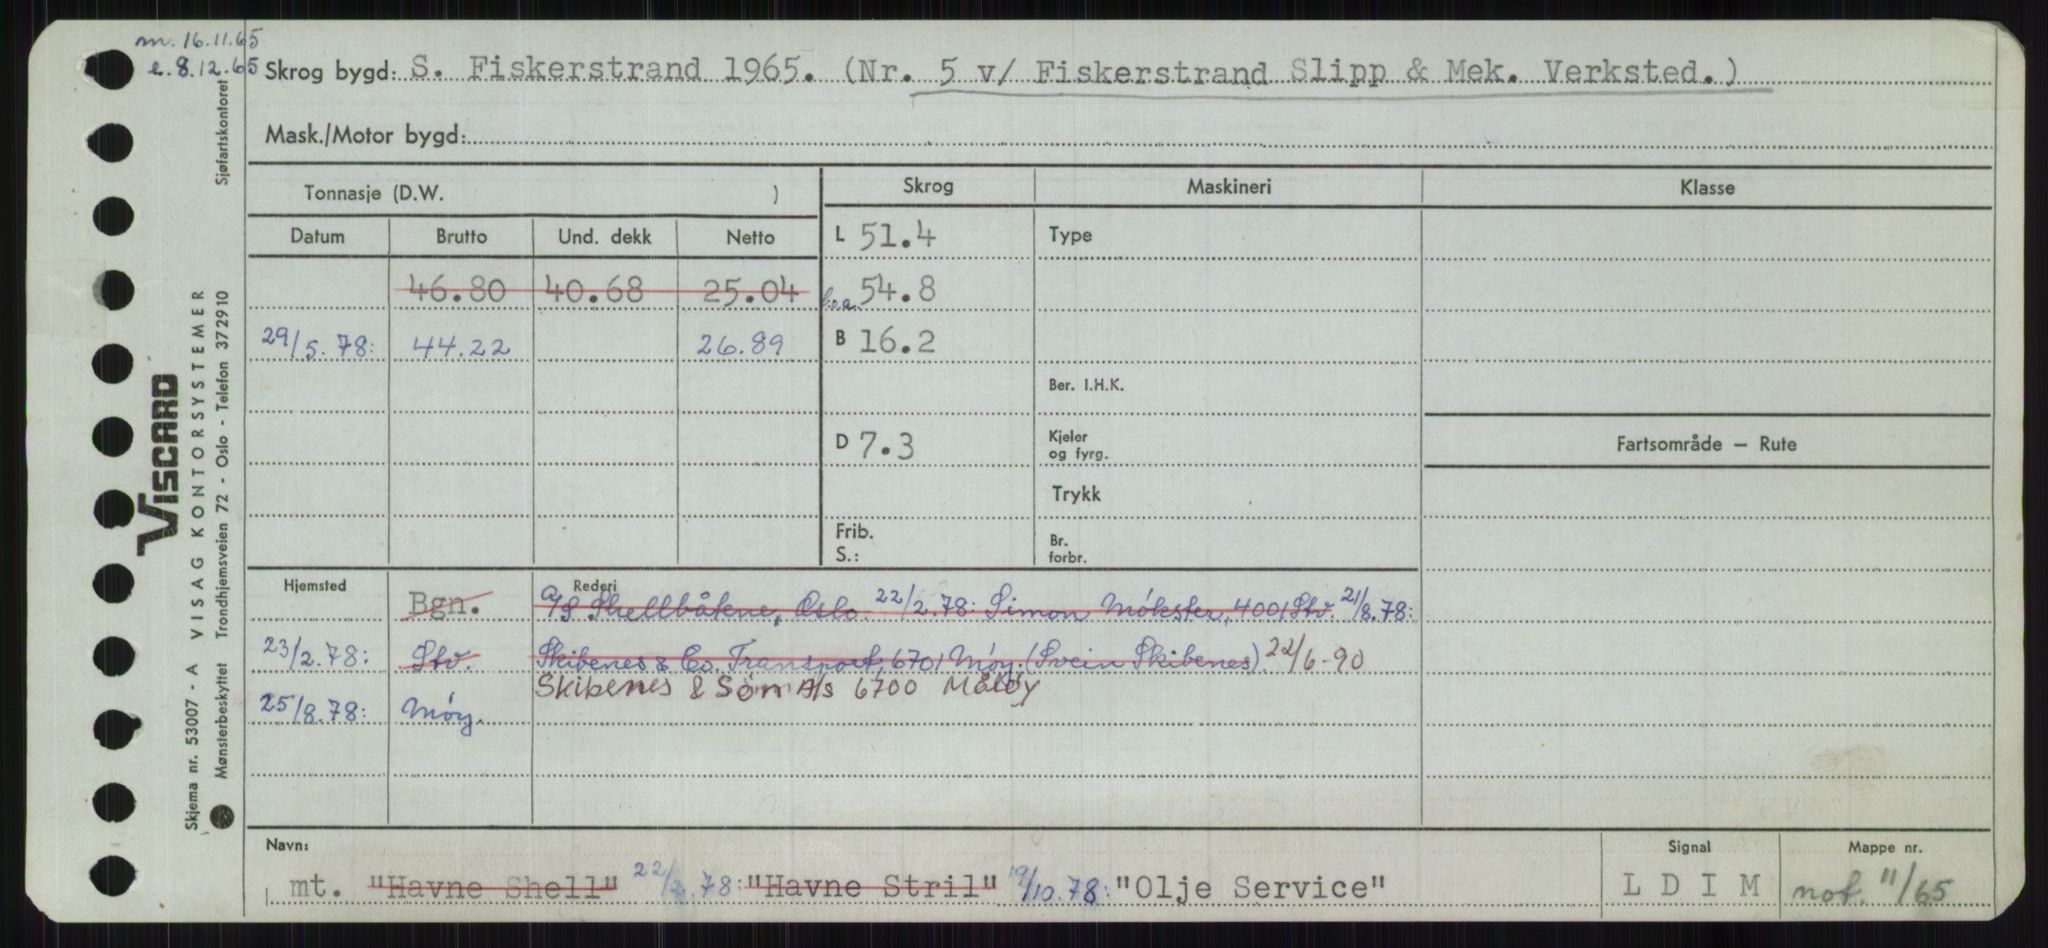 m. 16.11.65
e. 8.12.65
Skrog bygd: S. Fiskerstrand 1965. (Nr. 5 v/ Fiskerstrand Slipp & Mek. Verksted.)
Mask./Motor bygd:
Tonnasje (D.W. )
Skrog Maskineri Klasse
Datum Brutto Und. dekk Netto
L 51.4 Type
46.80 40.68 25.04
l.o.a. 54.8
29/5.78: 44.22 26.89
B 16.2
Ber. I.H.K.
D 7.3
Kjeler
og fyrg.
Fartsområde — Rute
Trykk
Frib.
S.:
Br.
forbr.
Hjemsted Rederi
Bgn. A/S Shellbåtene, Oslo. 22/2.78: Simon Møkster, 4001 Stv. 21/8.78:
23/2.78: Stv. Skibenes & Co. Transport, 6701 Møy. (Svein Skibenes) 22/6-90
Skibenes & Søn A/s 6700 Måløy
25/8.78: Møy.
Navn: Signal Mappe nr.
mt. "Havne Shell" 22/2.78: "Havne Stril" 19/10.78: "Olje Service" L D I M not. 11/65
Sjøfartskontoret
VISCARD
Skjema nr. 53007 - A VISAG KONTORSYSTEMER
Mønsterbeskyttet Trondhjemsveien 72 - Oslo - Telefon 372910